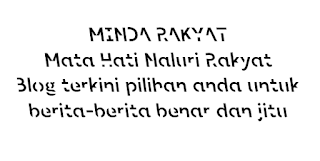 MINDA RAKYAT
Mata Hati Naluri Rakyat
Blog terkini pilihan anda untuk
berita-berita benar dan jitu